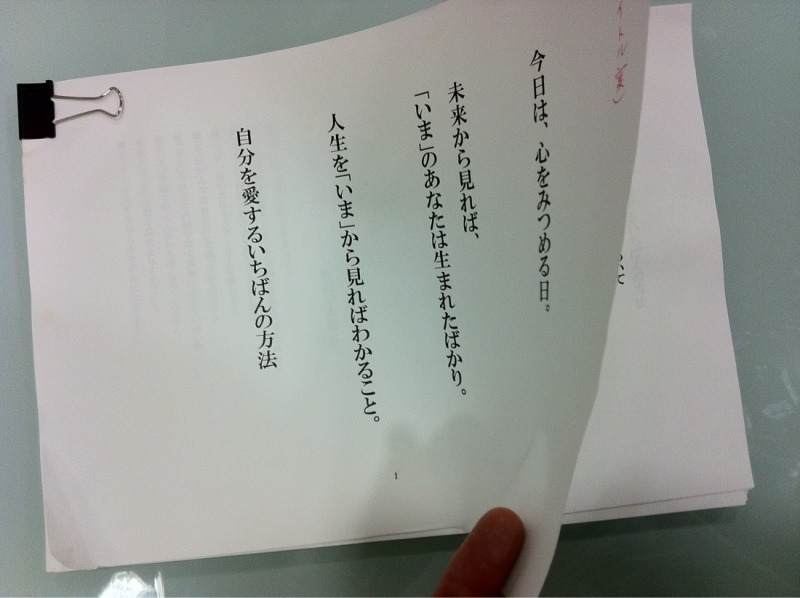 イトル案)
今日は、心をみつめる日。
未来から見れば、
「いま」のあなたは生まれたばかり。
人生を「いま」から見ればわかること。
自分を愛するいちばんの方法
1
いて